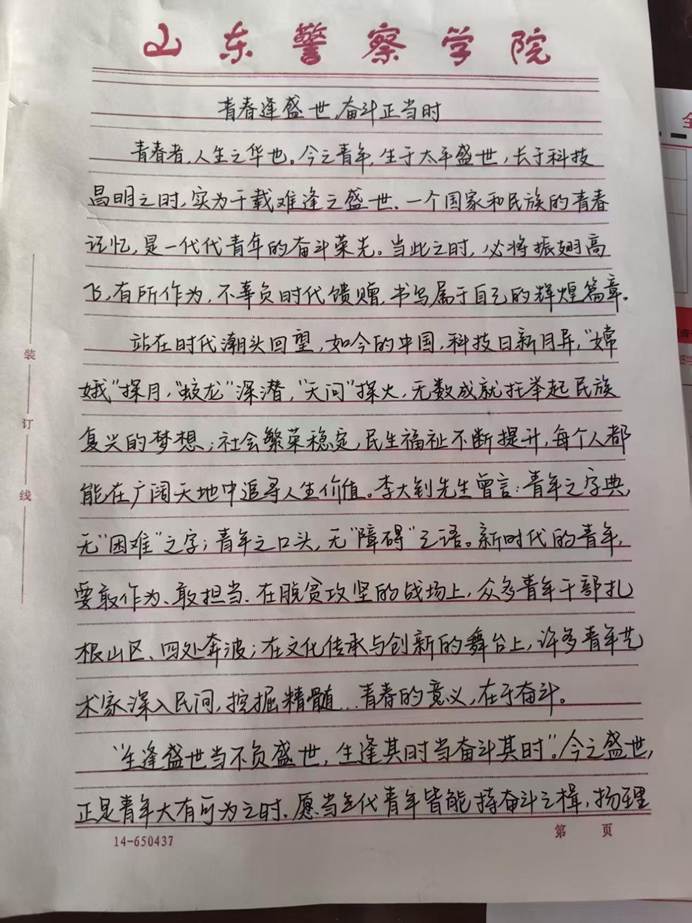 山东警察学院
青春逢盛世,奋斗正当时
青春者,人生之华也。今之青年,生于太平盛世,长于科技
昌明之时,实为千载难逢之盛世、一个国家和民族的青春
记忆,是一代代青年的奋斗荣光。当此之时,必将振翅高
飞,有所作为,不辜负时代馈赠,书写属于自己的辉煌篇章。
站在时代潮头回望,如今的中国,科技日新月异,"嫦
娥"探月,"蛟龙"深潜,"天问"探火,无数成就托举起民族
复兴的梦想;社会繁荣稳定,民生福祉不断提升,每个人都
能在广阔天地中追寻人生价值。李大钊先生曾言:青年之字典,
无"困难"之字;青年之口头,无"障碍"之语。新时代的青年,
要敢作为、敢担当、在脱贫攻坚的战场上,众多青年干部扎
根山区、四处奔波;在文化传承与创新的舞台上,许多青年艺
术家深入民间,挖掘精髓...青春的意义,在于奋斗。
"生逢盛世当不负盛世,生逢其时当奋斗其时"。今之盛世,
正是青年大有可为之时、愿当代青年皆能持奋斗之楫,扬理
装
订
线
14-650437
第 页
全